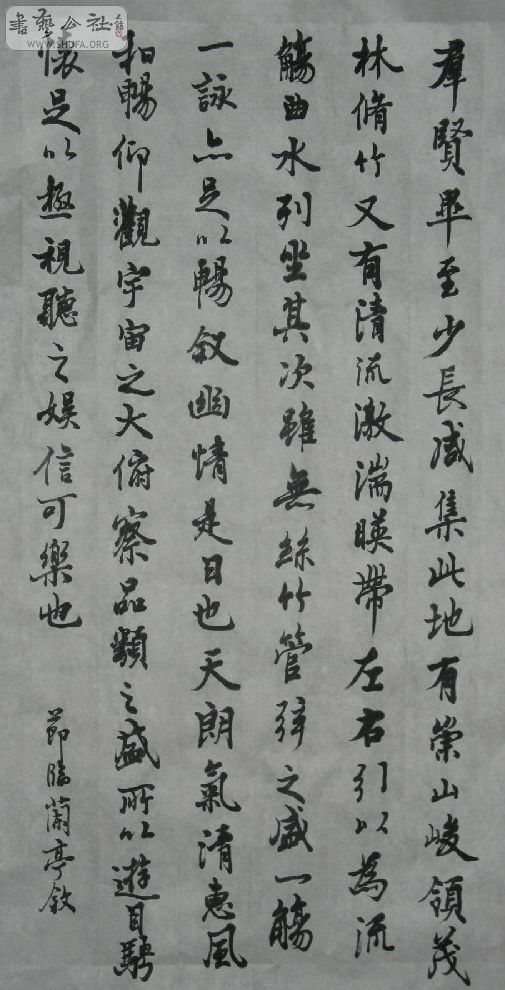 羣賢畢至少長咸集此地有崇山峻領茂
林脩竹又有清流激湍暎帶左右引以為流
觴曲水列坐其次雖無絲竹管弦之盛一觴
一詠亦足以暢敘幽情是日也天朗氣清惠風
和暢仰觀宇宙之大俯察品類之盛所以遊目騁
懷足以極視聽之娛信可樂也
節臨蘭亭敘
書藝公社
WWW.SHUFA.ORG